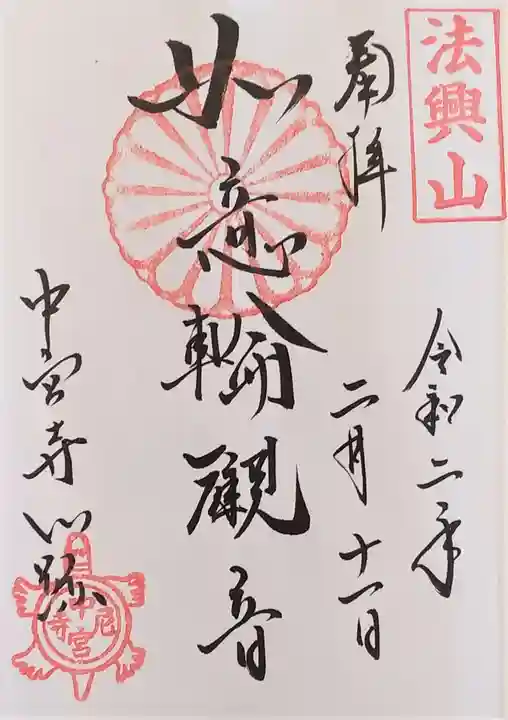 法興山
奉拝
令和二年
二月十一日
如意輪觀音
中宮寺門跡
中宮尼寺